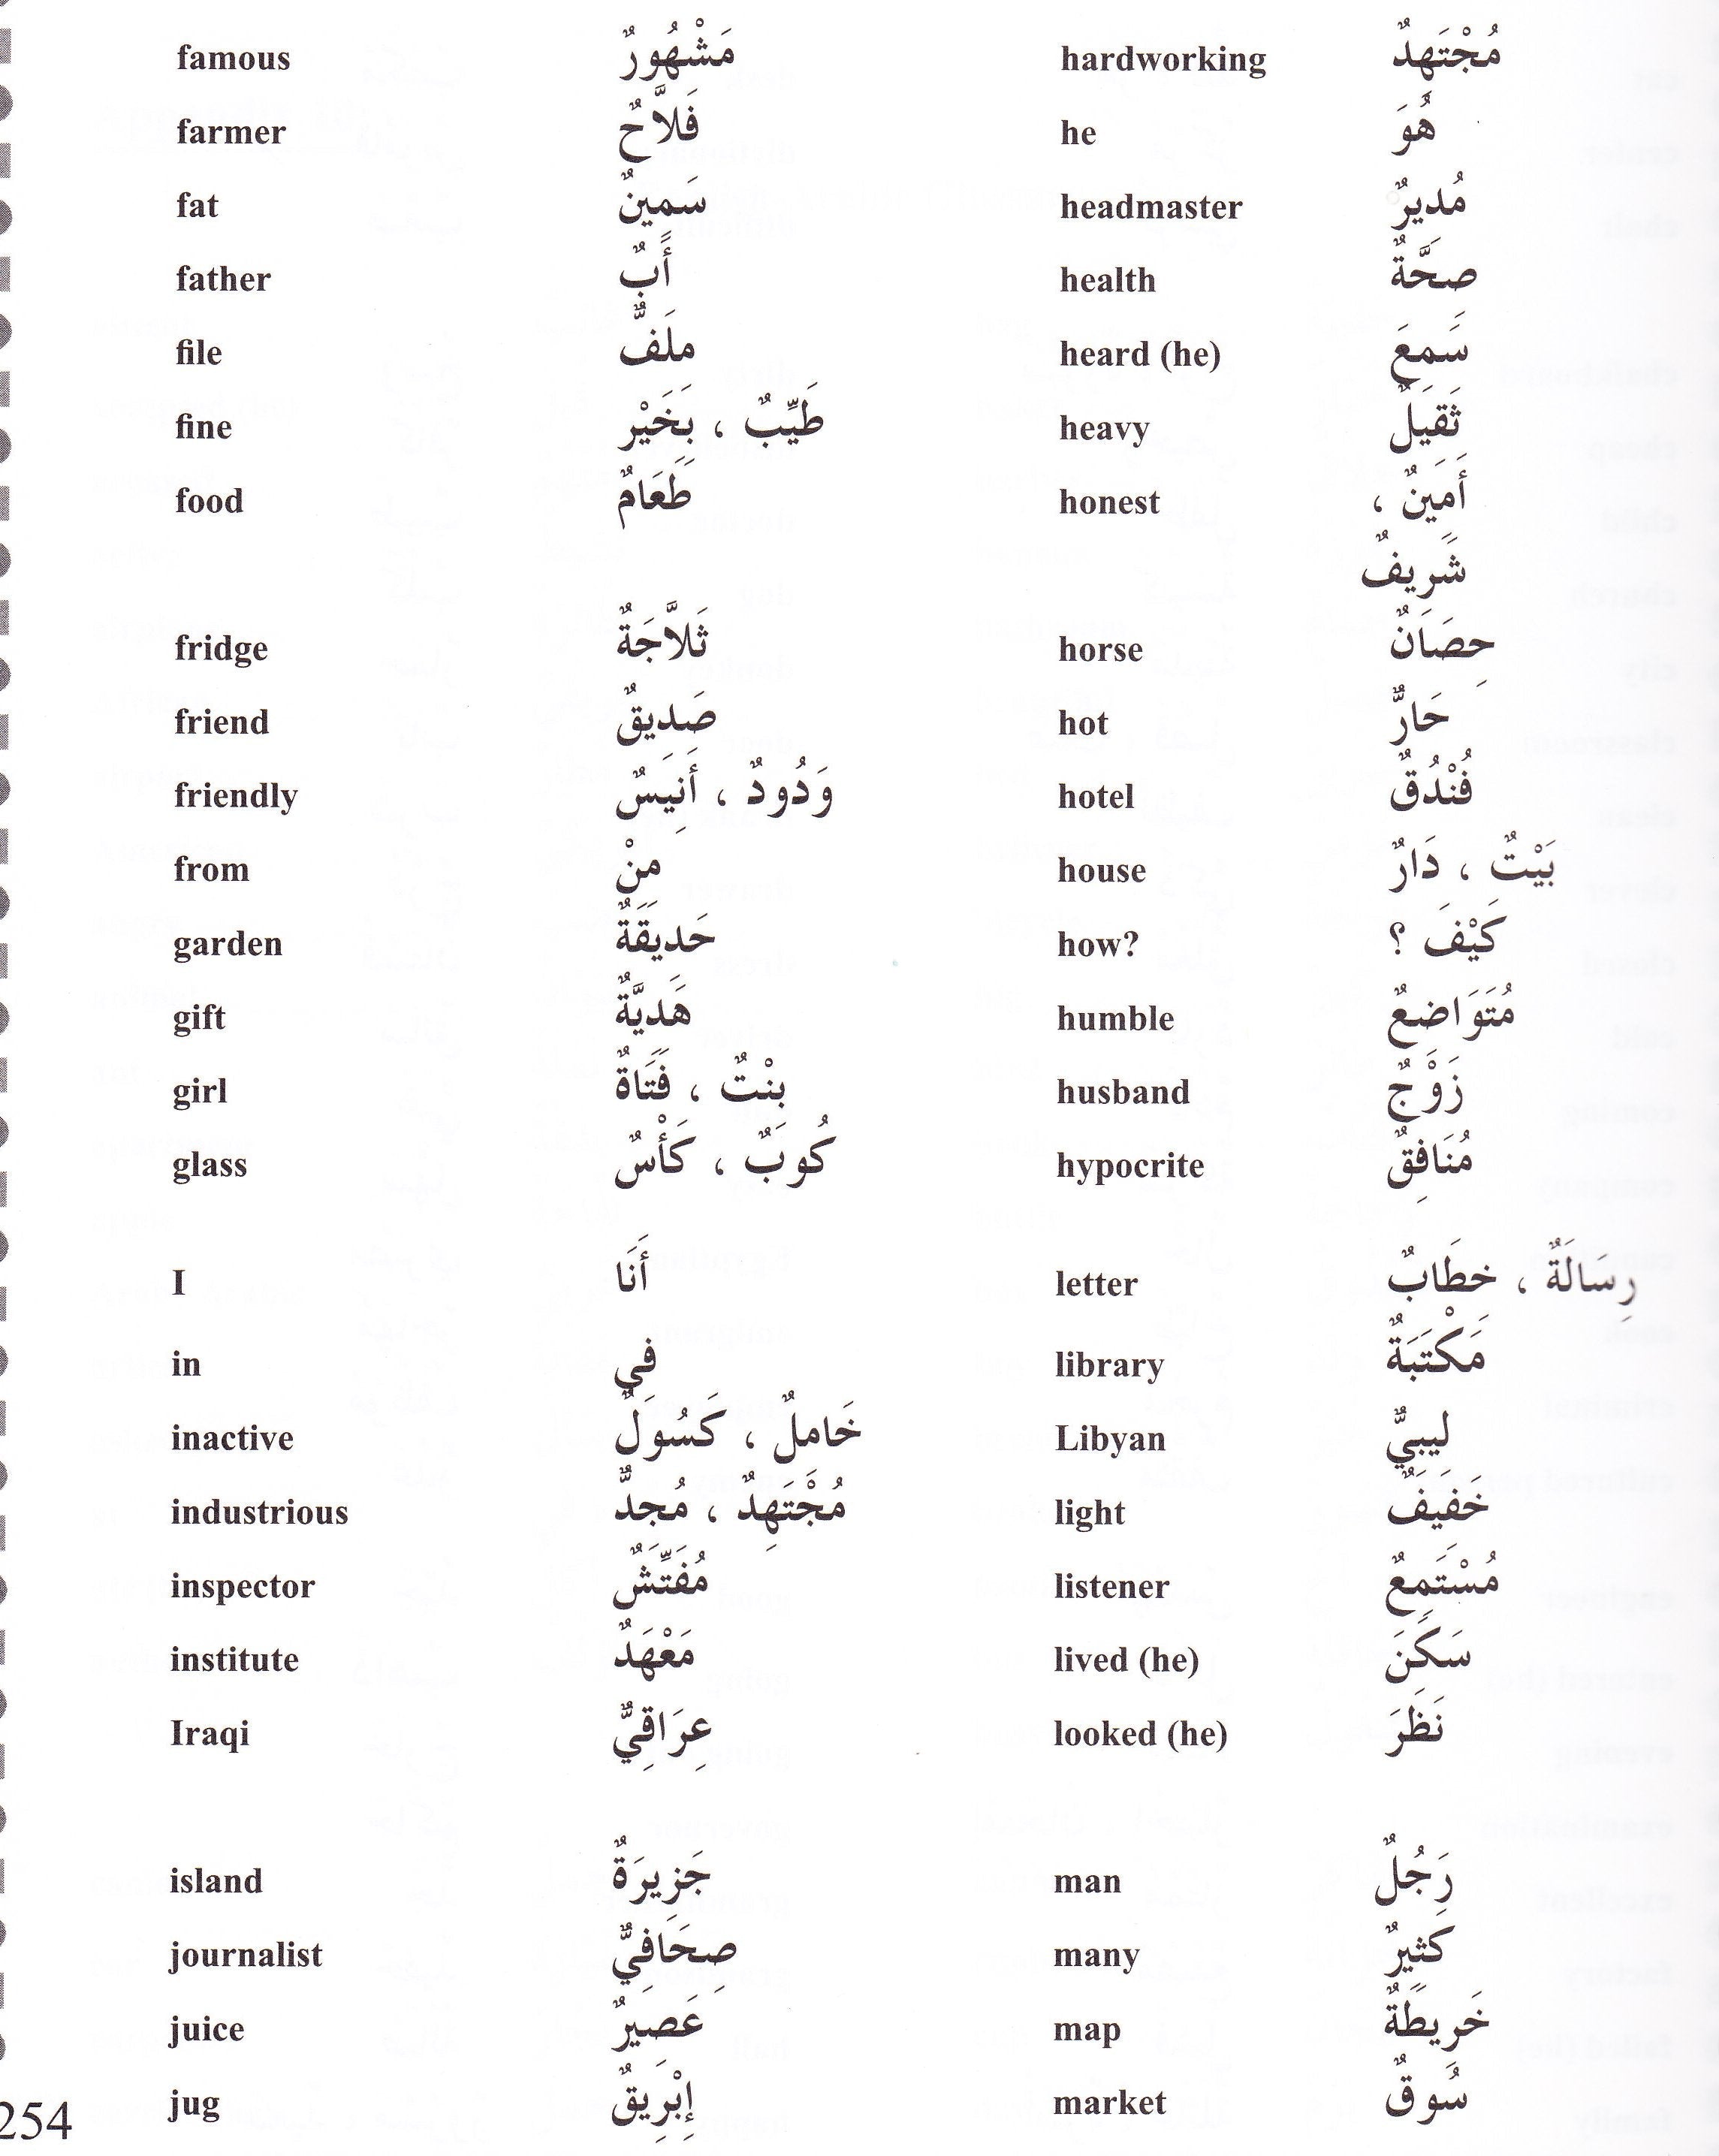 famous مَشْهُورٌ hardworking مُجْتَهِدٌ
farmer فَلاَّحٌ he هُوَ
fat سَمِينٌ headmaster مُدِيرٌ
father أَبٌ health صِحَّةٌ
file مِلَفٌّ heard (he) سَمِعَ
fine طَيِّبٌ ، بِخَيْرٍ heavy ثَقِيلٌ
food طَعَامٌ honest أَمِينٌ ،
شَرِيفٌ
fridge ثَلاَّجَةٌ horse حِصَانٌ
friend صَدِيقٌ hot حَارٌّ
friendly وَدُودٌ ، أَنِيسٌ hotel فُنْدُقٌ
from مِنْ house بَيْتٌ ، دَارٌ
garden حَدِيقَةٌ how? كَيْفَ ؟
gift هَدِيَّةٌ humble مُتَوَاضِعٌ
girl بِنْتٌ ، فَتَاةٌ husband زَوْجٌ
glass كُوبٌ ، كَأْسٌ hypocrite مُنَافِقٌ
I أَنَا letter رِسَالَةٌ ، خِطَابٌ
in فِي library مَكْتَبَةٌ
inactive خَامِلٌ ، كَسُولٌ Libyan لِيبِيٌّ
industrious مُجْتَهِدٌ ، مُجِدٌّ light خَفِيفٌ
inspector مُفَتِّشٌ listener مُسْتَمِعٌ
institute مَعْهَدٌ lived (he) سَكَنَ
Iraqi عِرَاقِيٌّ looked (he) نَظَرَ
island جَزِيرَةٌ man رَجُلٌ
journalist صِحَافِيٌّ many كَثِيرٌ
juice عَصِيرٌ map خَرِيطَةٌ
jug إِبْرِيقٌ market سُوقٌ
254